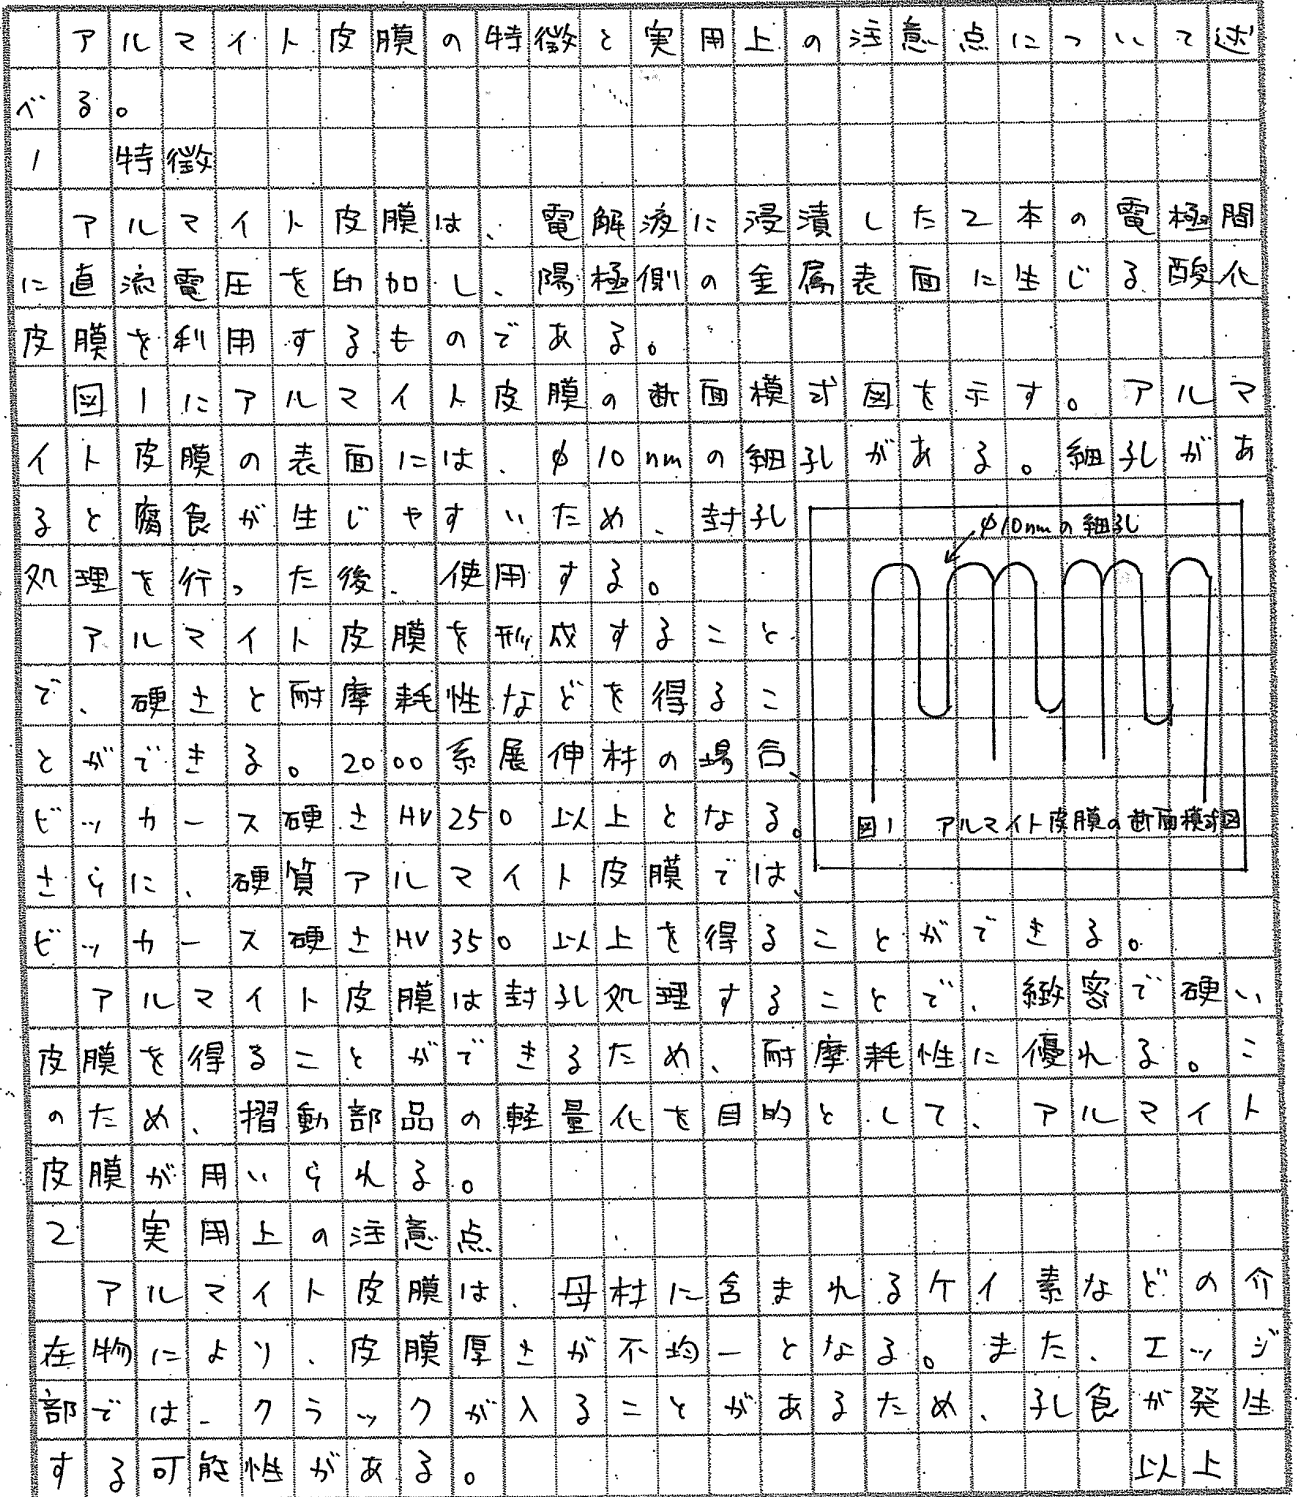 アルマイト皮膜の特徴と実用上の注意点について述
べる。
1 特徴
アルマイト皮膜は、電解液に浸漬した2本の電極間
に直流電圧を印加し、陽極側の金属表面に生じる酸化
皮膜を利用するものである。
図1にアルマイト皮膜の断面模式図を示す。アルマ
イト皮膜の表面には、φ10nmの細孔がある。細孔があ
ると腐食が生じやすいため、封孔
処理を行った後、使用する。
アルマイト皮膜を形成すること
で、硬さと耐摩耗性などを得るこ
とができる。2000系展伸材の場合、
ビッカース硬さHV250以上となる。
さらに、硬質アルマイト皮膜では、
φ10nmの細孔
図1 アルマイト皮膜の断面模式図
ビッカース硬さHV350以上を得ることができる。
アルマイト皮膜は封孔処理することで、緻密で硬い
皮膜を得ることができるため、耐摩耗性に優れる。こ
のため、摺動部品の軽量化を目的として、アルマイト
皮膜が用いられる。
2 実用上の注意点
アルマイト皮膜は、母材に含まれるケイ素などの介
在物により、皮膜厚さが不均一となる。また、エッジ
部では、クラックが入ることがあるため、孔食が発生
する可能性がある。 以上